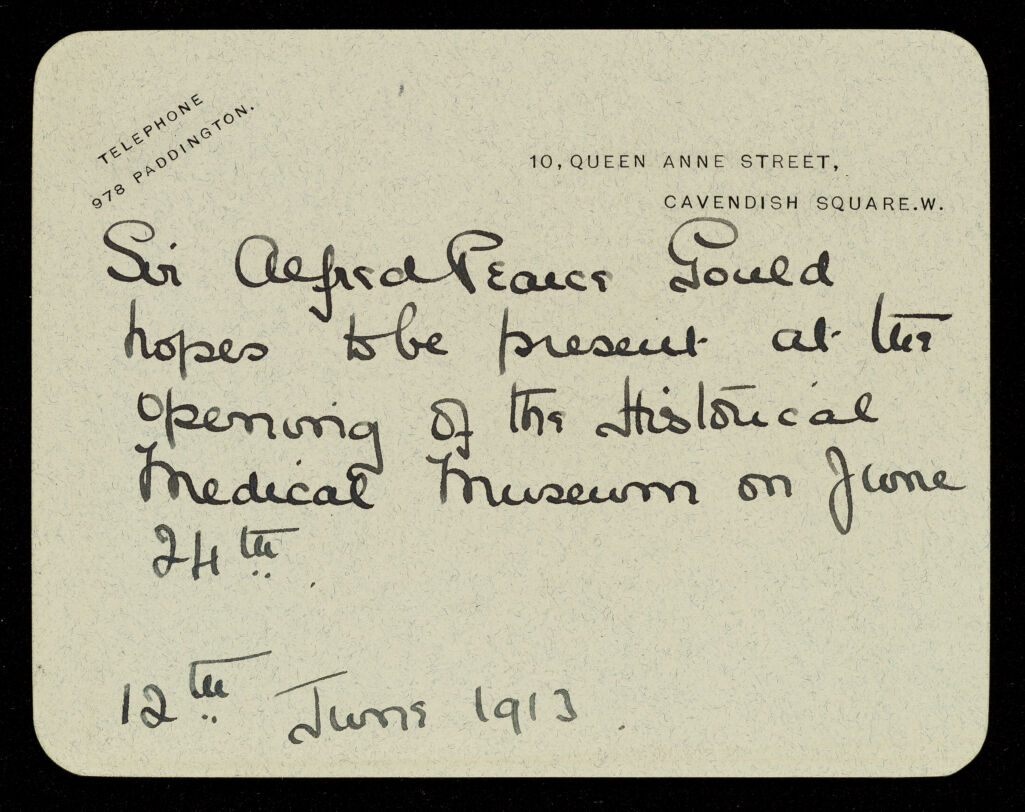 TELEPHONE
978 PADDINGTON.
10, QUEEN ANNE STREET,
CAVENDISH SQUARE.W.
Sir Alfred Pearce Gould
hopes to be present at the
opening of the Historical
Medical Museum on June
24th.
12th June 1913.